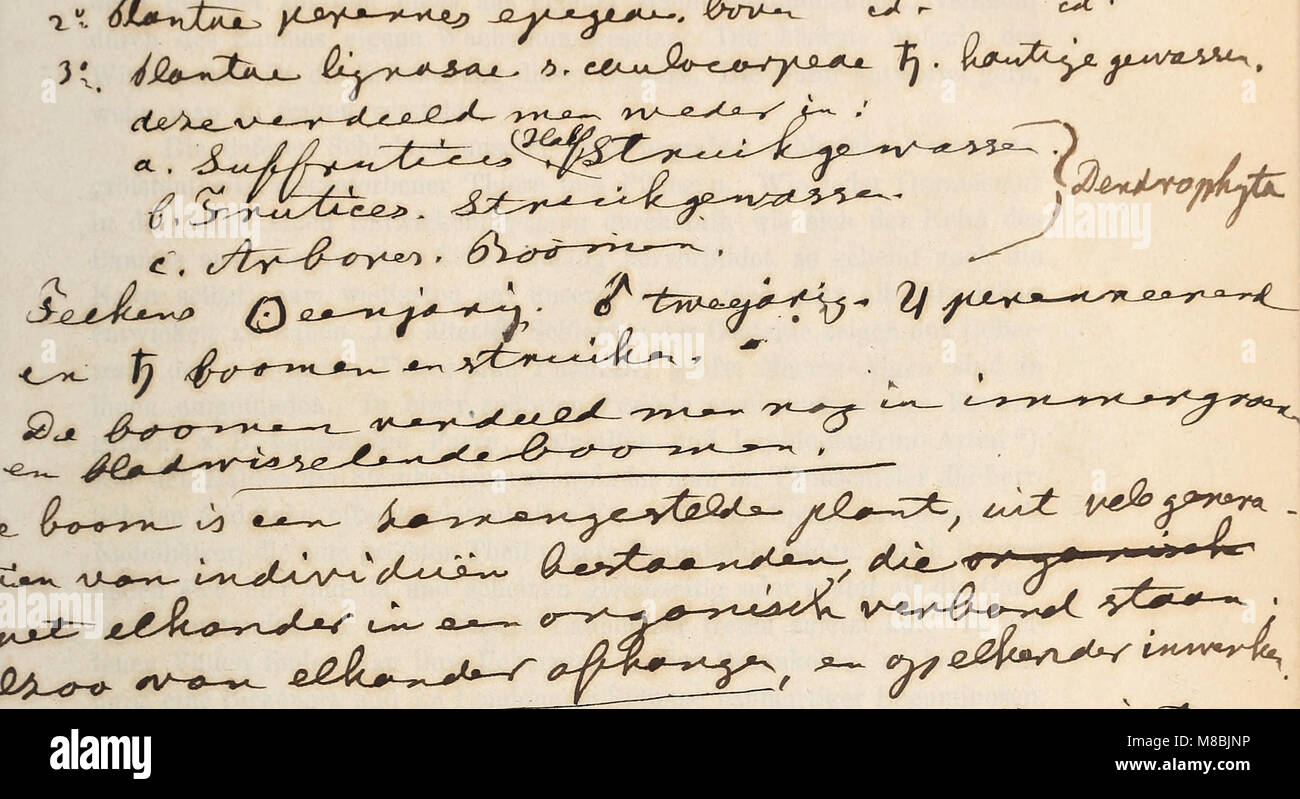 2º Plantae perennes epigeae. boven id. id.
3º. Plantae lignosae s. caulocarpeae ♄. houtige gewassen.
deze verdeeld men weder in:
a. Suffrutices. (Half) Struikgewassen.
b. Frutices. Struikgewassen.
c. Arbores. Boomen.
Dendrophyta
Teekens ⊙ eenjarig. ♂ tweejarig. ♃ perenneerend
en ♄ boomen en struiken.
De boomen verdeeld men nog in immergroene
en bladwisselende boomen.
e boom is een zamengestelde plant, uit vele genera-
tien van individuën bestaanden, die organisch
met elkander in een organisch verband staan.
lzoo van elkander afhangen, en op elkender inwerken.
alamy
alamy
Image ID: M8BJNP
www.alamy.com